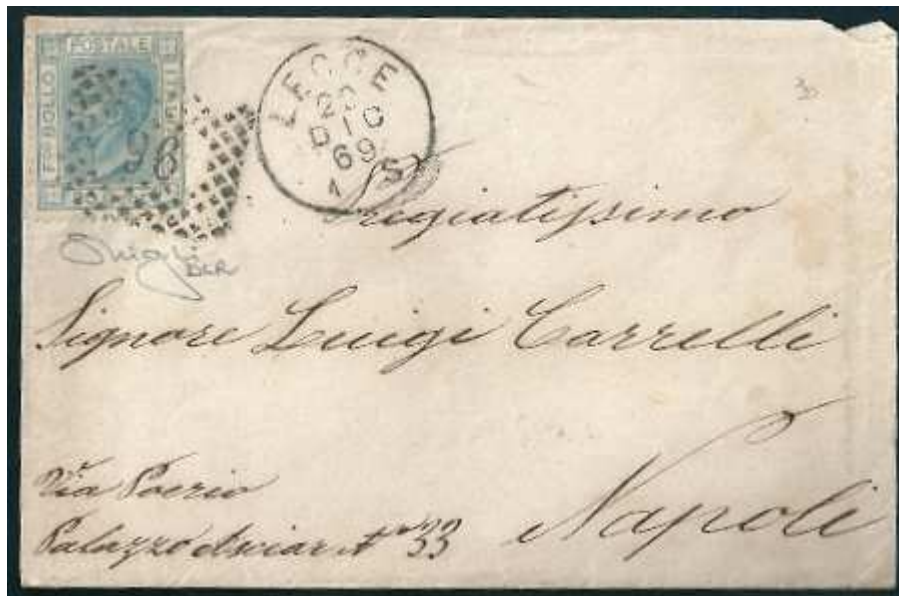 POSTALE
FCO BOLLO
ITAL
96
LECCE
DIC
69
Pregiatissimo
Signore Luigi Carrelli
Via Poerio
Palazzo No 33
Napoli